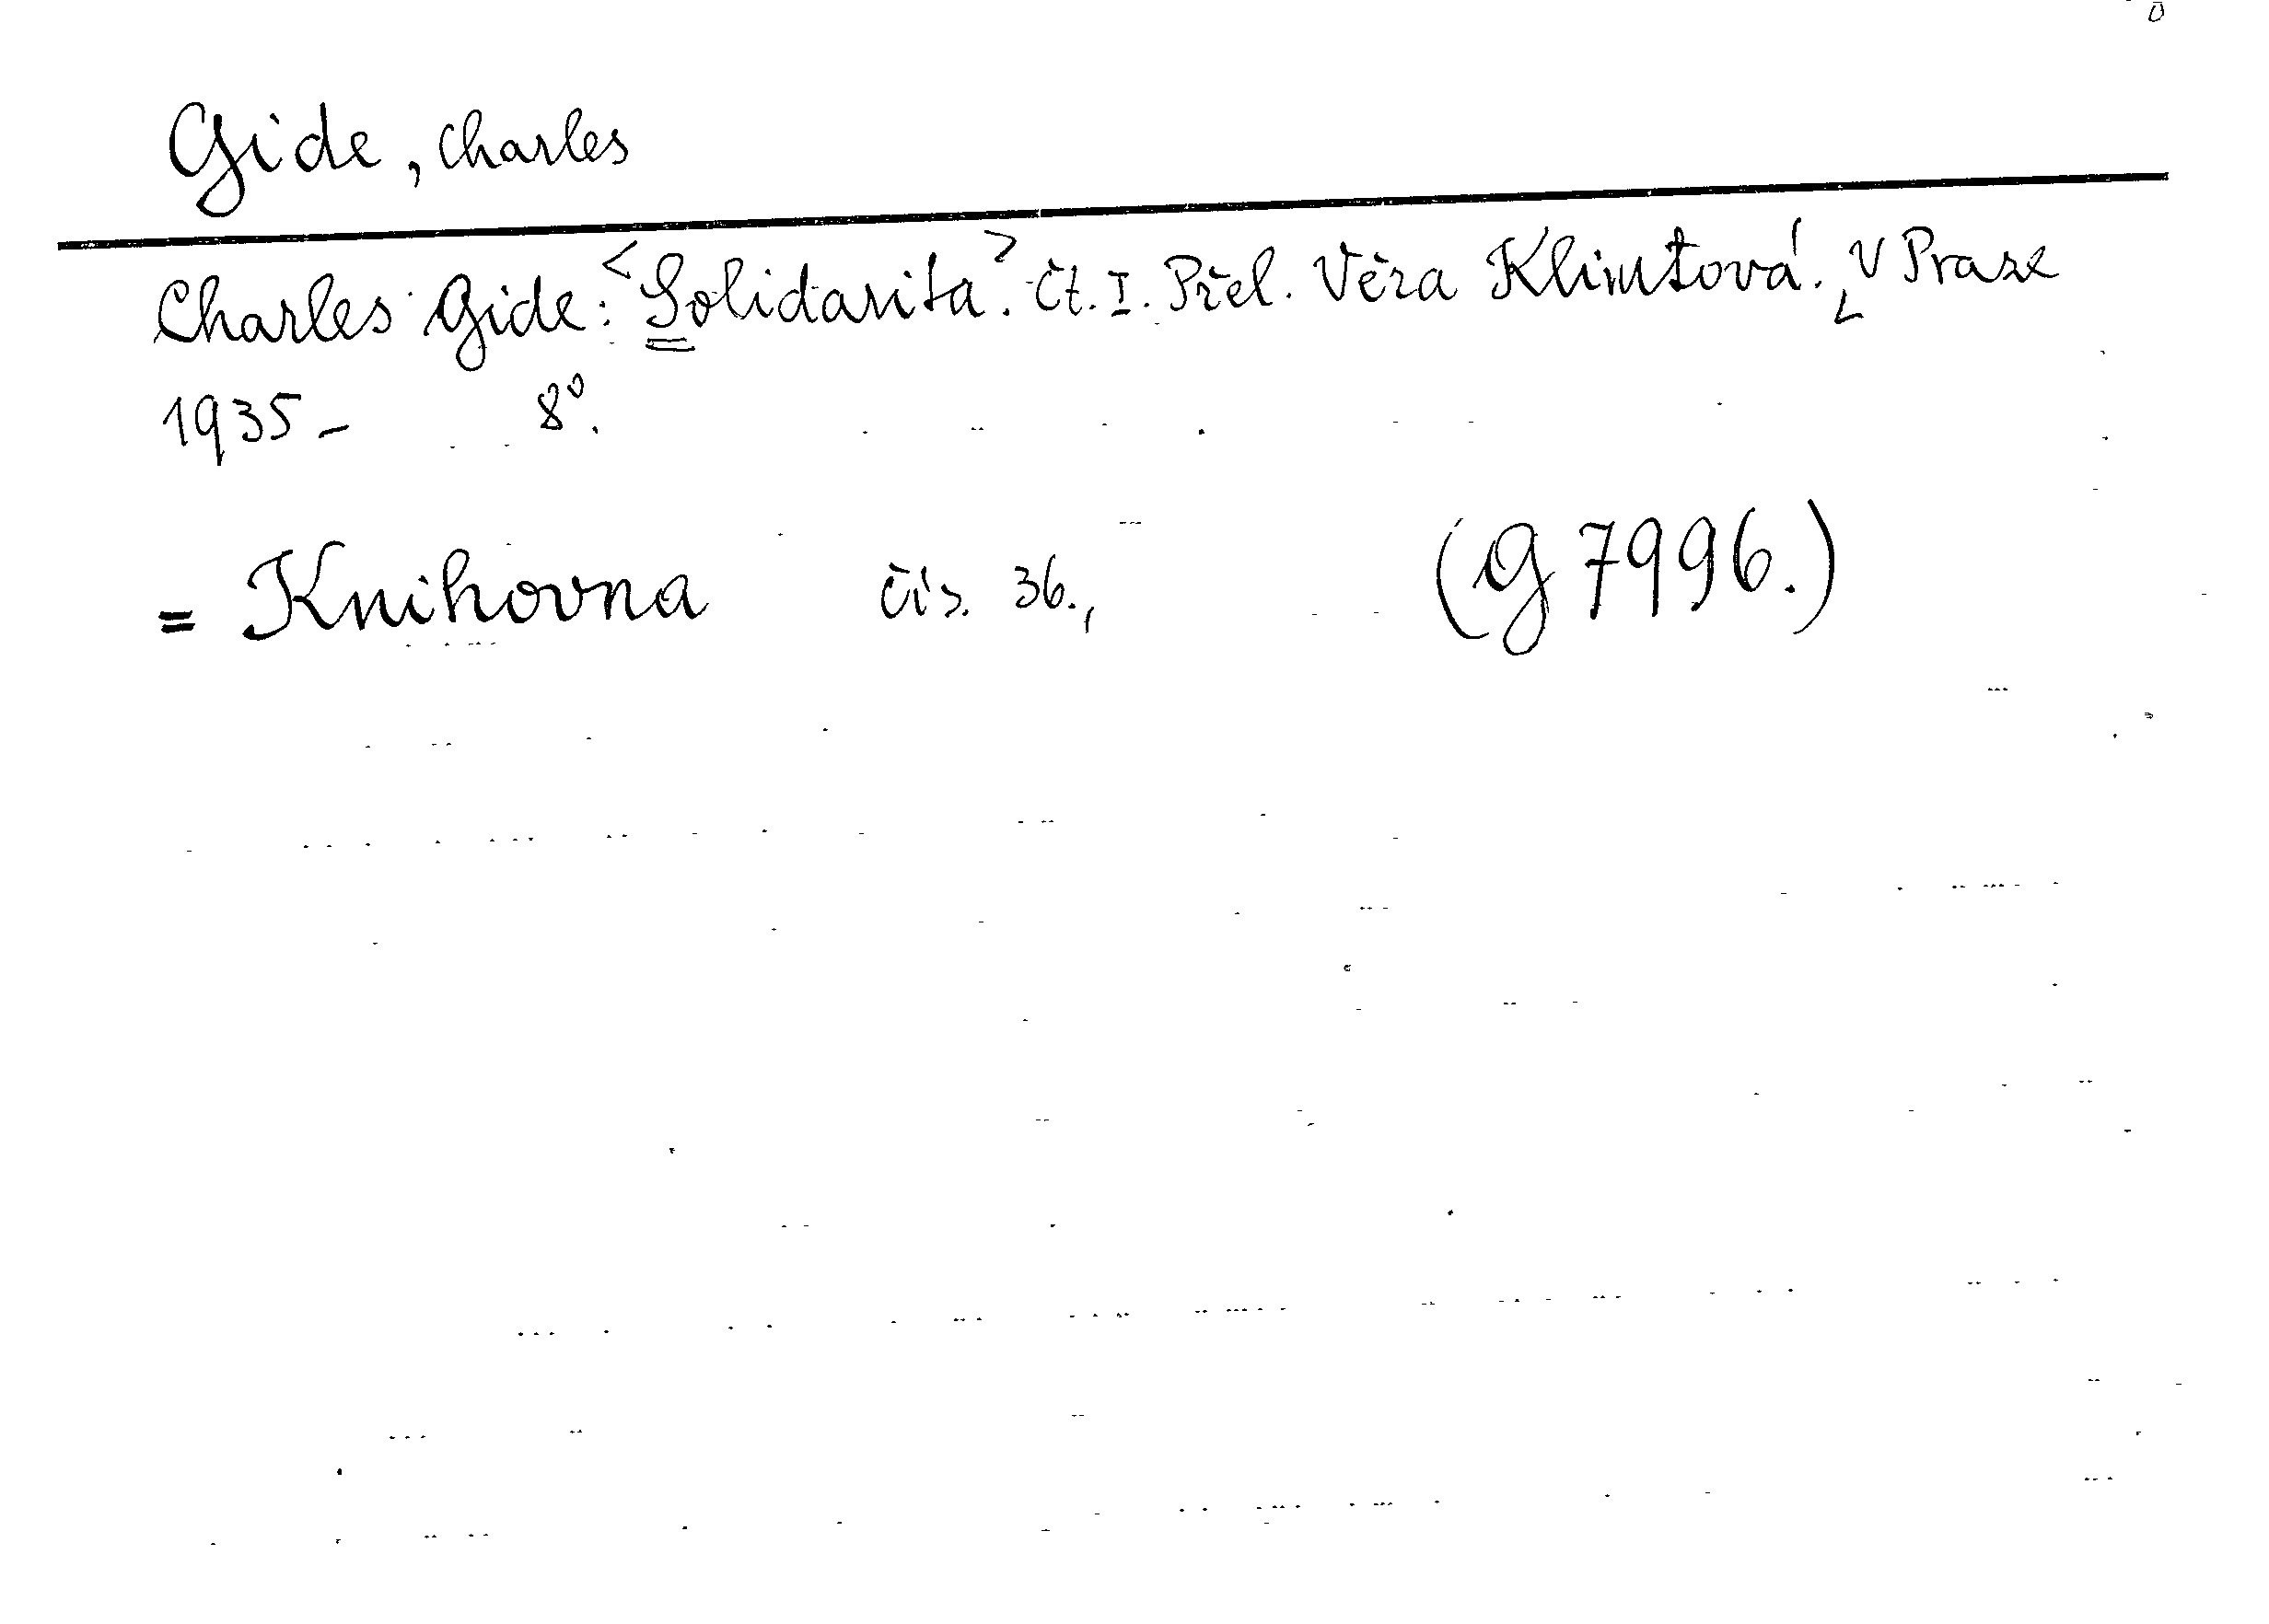 Gide, Charles
Charles Gide: <Solidarita>. Čt. I. Přel. Věra Klimtová. V Praze
1935- 8°.
= Knihovna čís. 36., (G 7996.)